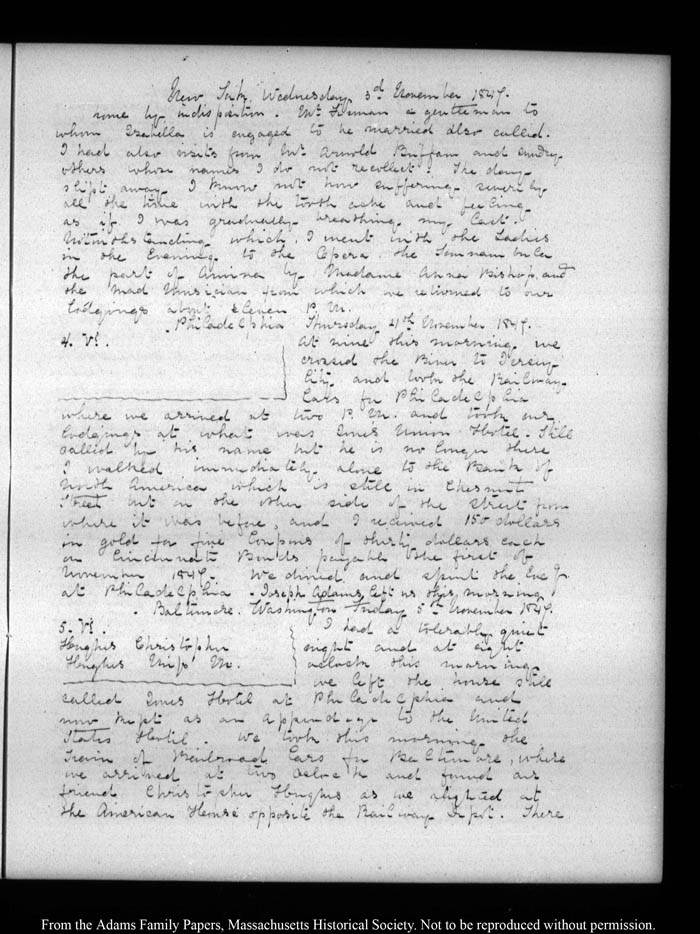 New York, Wednesday 3d November 1847.
some by indisposition. Mr a gentleman to
whom Izabella is engaged to be married also called.
I had also visits from Mr Arnold Buffum and sundry
others whose names I do not recollect. The day
slipt away I know not how suffering severely
all the time with the tooth ache and feeling
as if I was gradually breathing my last.
Notwithstanding which, I went with the Ladies
in the Evening to the Opera, the Somnambula
the part of Amina by Madame Anna Bishop, and
the mad Musician from which we returned to our
lodgings about Eleven P.M.
Philadelphia Thursday 4th November 1847.
4. V.
At nine this morning, we
crossed the River to Jersey
City and took the Railway
Cars for Philadelphia
where we arrived at two P.M. and took our
lodgings at what was Jones Union Hotel. Still
called by his name but he is no longer there
I walked immediately alone to the Bank of
North America which is still in Chesnut
Street but on the other side of the street from
where it was before, and I received 150 dollars
in gold for five Coupons of thirty dollars each
on Cincinnati Bonds payable the first of
November 1847. We dined and spent the Eve.g
at Philadelphia. Joseph Adams left us this morning
Baltimore. Washington Friday 5th November 1847.
5. VI.
Hughes Christopher
Hughes Miss M.
I had a tolerably quiet
night and at eight
oclock this morning
we left the house still
called Jones Hotel at Philadelphia and
now kept as an appendage to the United
States Hotel. We took this morning the
Train of Railroad Cars for Baltimore, where
we arrived at two oclock and found our
friend Christopher Hughes as we alighted at
the American House opposite the Railway Depot. There
From the Adams Family Papers, Massachusetts Historical Society. Not to be reproduced without permission.